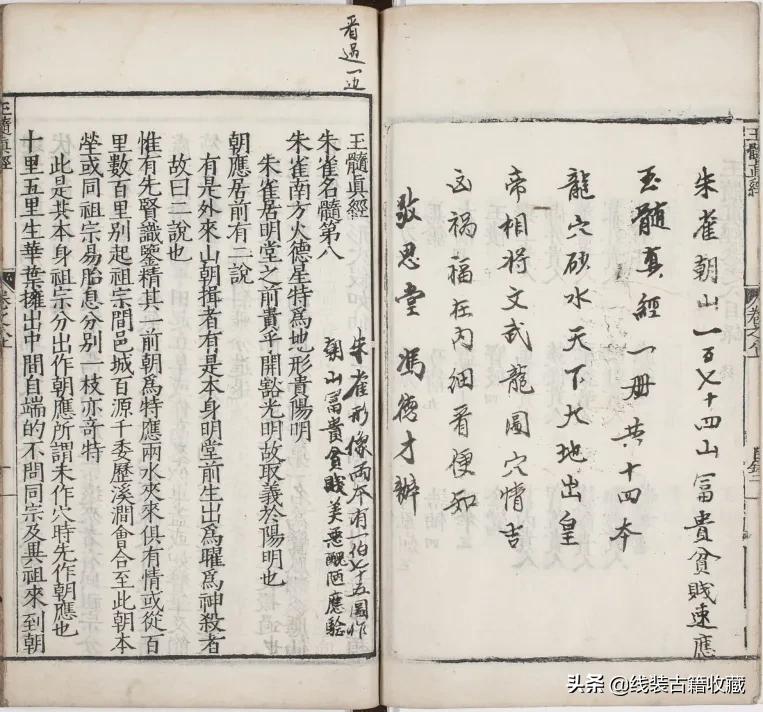 玉髓眞經
朱雀朝山一百七十四山富貴貧賤速應
玉髓真經一册共十四本
龍穴砂水天下大地出皇
帝相将文武龍圖穴情吉
凶禍福在内細看便知
敬思堂 馮德才辦
看過一边
玉髓眞經
朱雀形像兩本有一百七十五圖作
朱雀名髓第八
朝山富貴貧賤美恶醜陋應驗
朱雀南方火德星特爲地形貴陽明
朱雀居明堂之前貴乎開豁光明故取義於陽明也
朝應居前有二說
有是外來山朝揖者有是本身明堂前生出爲曜爲神殺者
故曰二說也
惟有先賢識鑒精其一前朝爲特應兩水夾來俱有情或從百
里數百里别起祖宗間邑城百源千委歷溪澗會合至此朝本
塋或同祖宗易胎息分别一枝亦竒特
此是其本身祖宗分出作朝應所謂未作穴時先作朝應也
十里五里生華葉擁出中間自端的不問同宗及異祖來到朝
玉髓眞經
头条 @线装古籍收藏